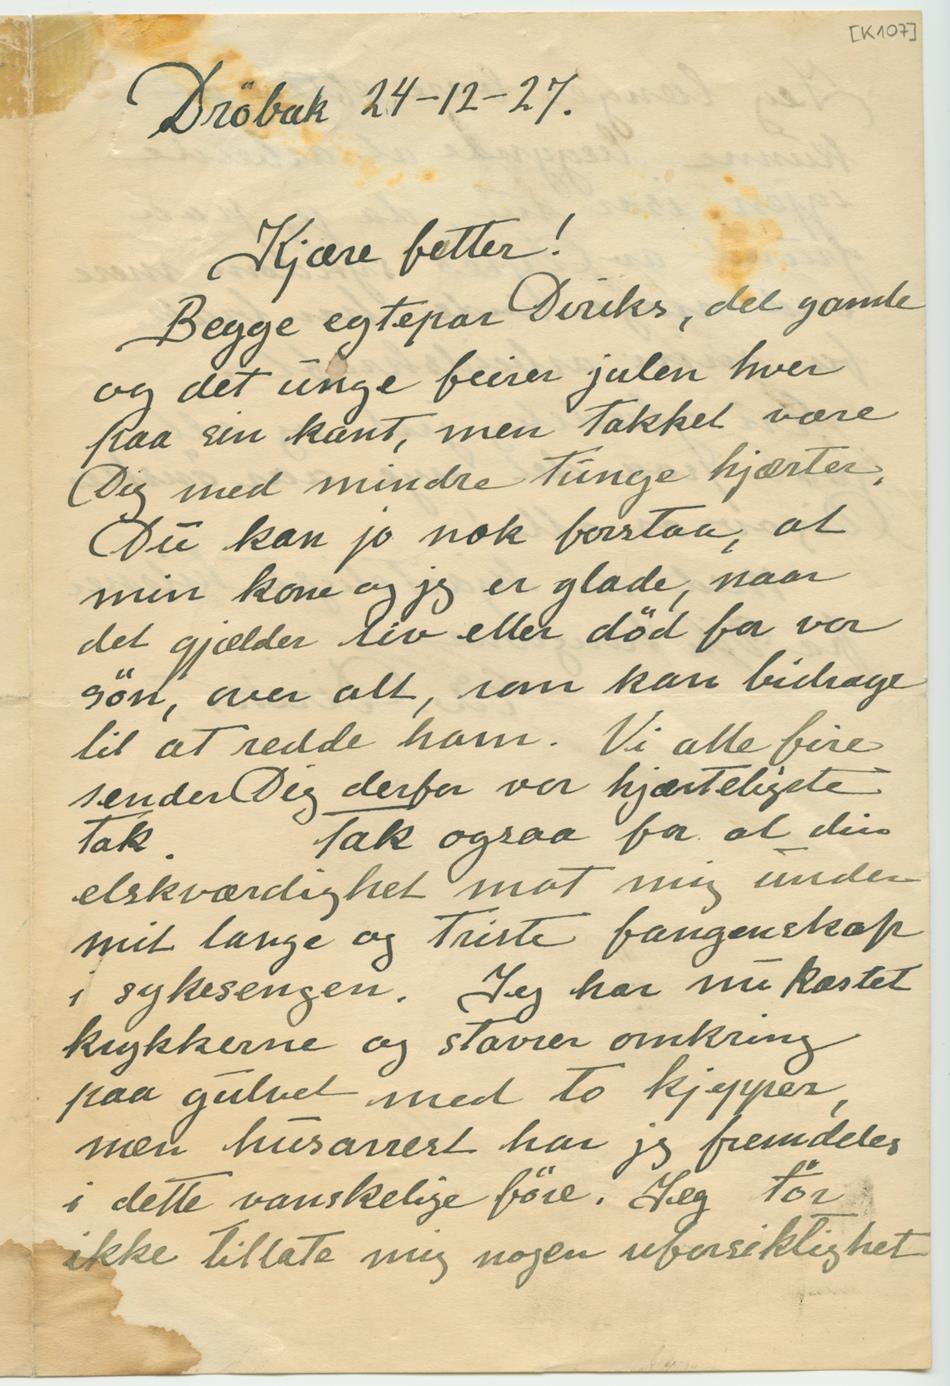 [K107]
Dröbak 24-12-27.
Kjære fetter!
Begge egtepar Diriks, det gamle
og det unge feirer julen hver
paa sin kant, men takket være
Dig med mindre tunge hjærter.
Du kan jo nok forstaa, at
min kone og jeg er glade, naar
det gjælder liv eller död for vor
sön, over alt, som kan bidrage
til at redde ham. Vi alle fire
sender Dig derfor vor hjærteligste
Tak. Tak ogsaa for al din
elskværdighet mot mig under
mit lange og triste fangenskap
i sykesengen. Jeg har nu kastet
krykkerne og stavrer omkring
paa gulvet med to kjepper,
men husarrest har jeg fremdeles
i dette vanskelige före. Jeg tör
ikke tillate mig nogen uforsiktighet